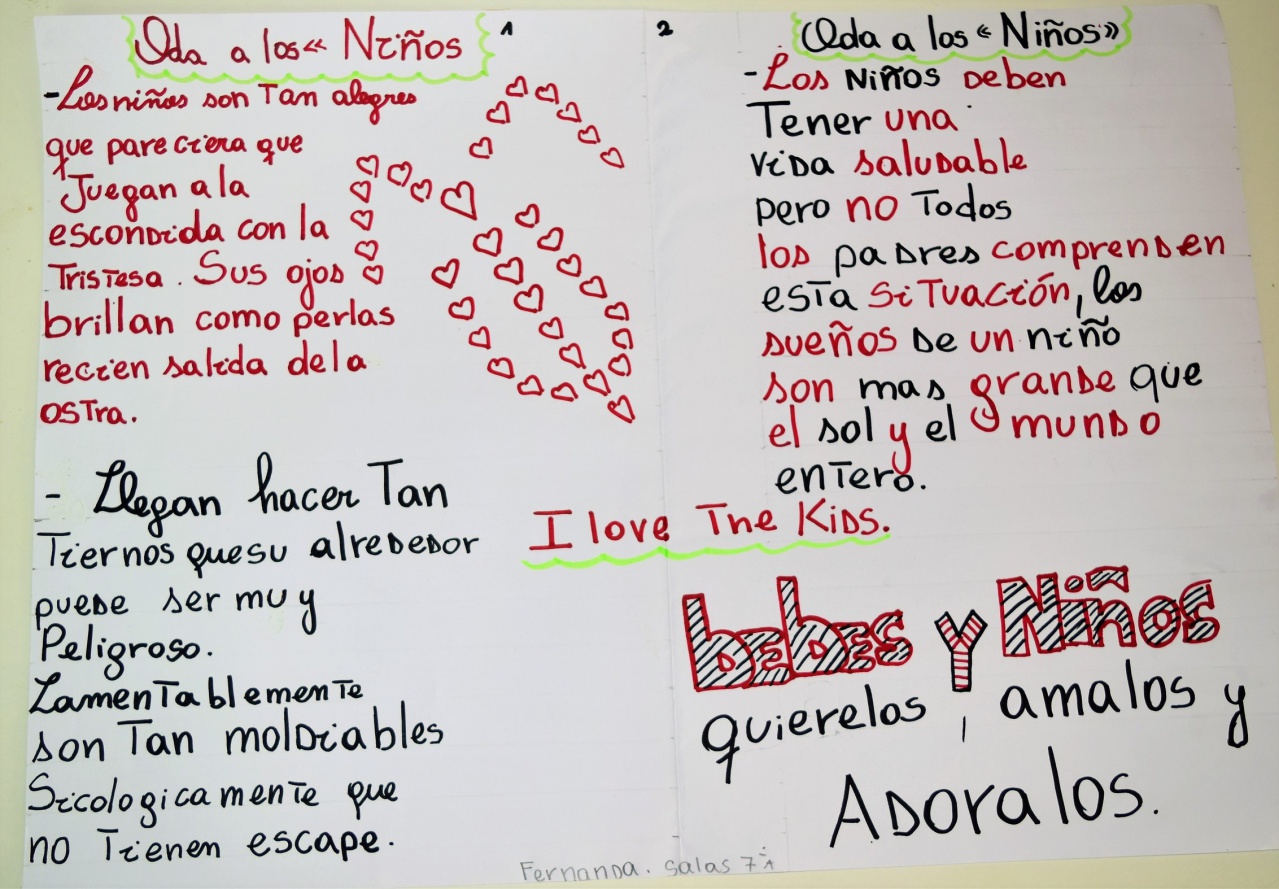 Oda a los « Niños
1
- Los niños son Tan alegres
que pareciera que
Juegan a la
escondida con la
Tristesa. Sus ojos
brillan como perlas
recien salida de la
osTra.
- Llegan hacer Tan
Tiernos que su alrededor
puede ser muy
Peligroso.
Lamentablemente
son Tan moldiables
Sicologicamente que
no Tienen escape.
2
Oda a los « Niños»
- Los Niños Deben
Tener una
vida saludable
pero no Todos
los padres comprenden
esta situación, los
sueños de un niño
son mas grande que
el sol y el mundo
entero.
I love The Kids.
bebes Y Niños
quierelos, amalos y
Adoralos.
Fernanda. Salas 7º1